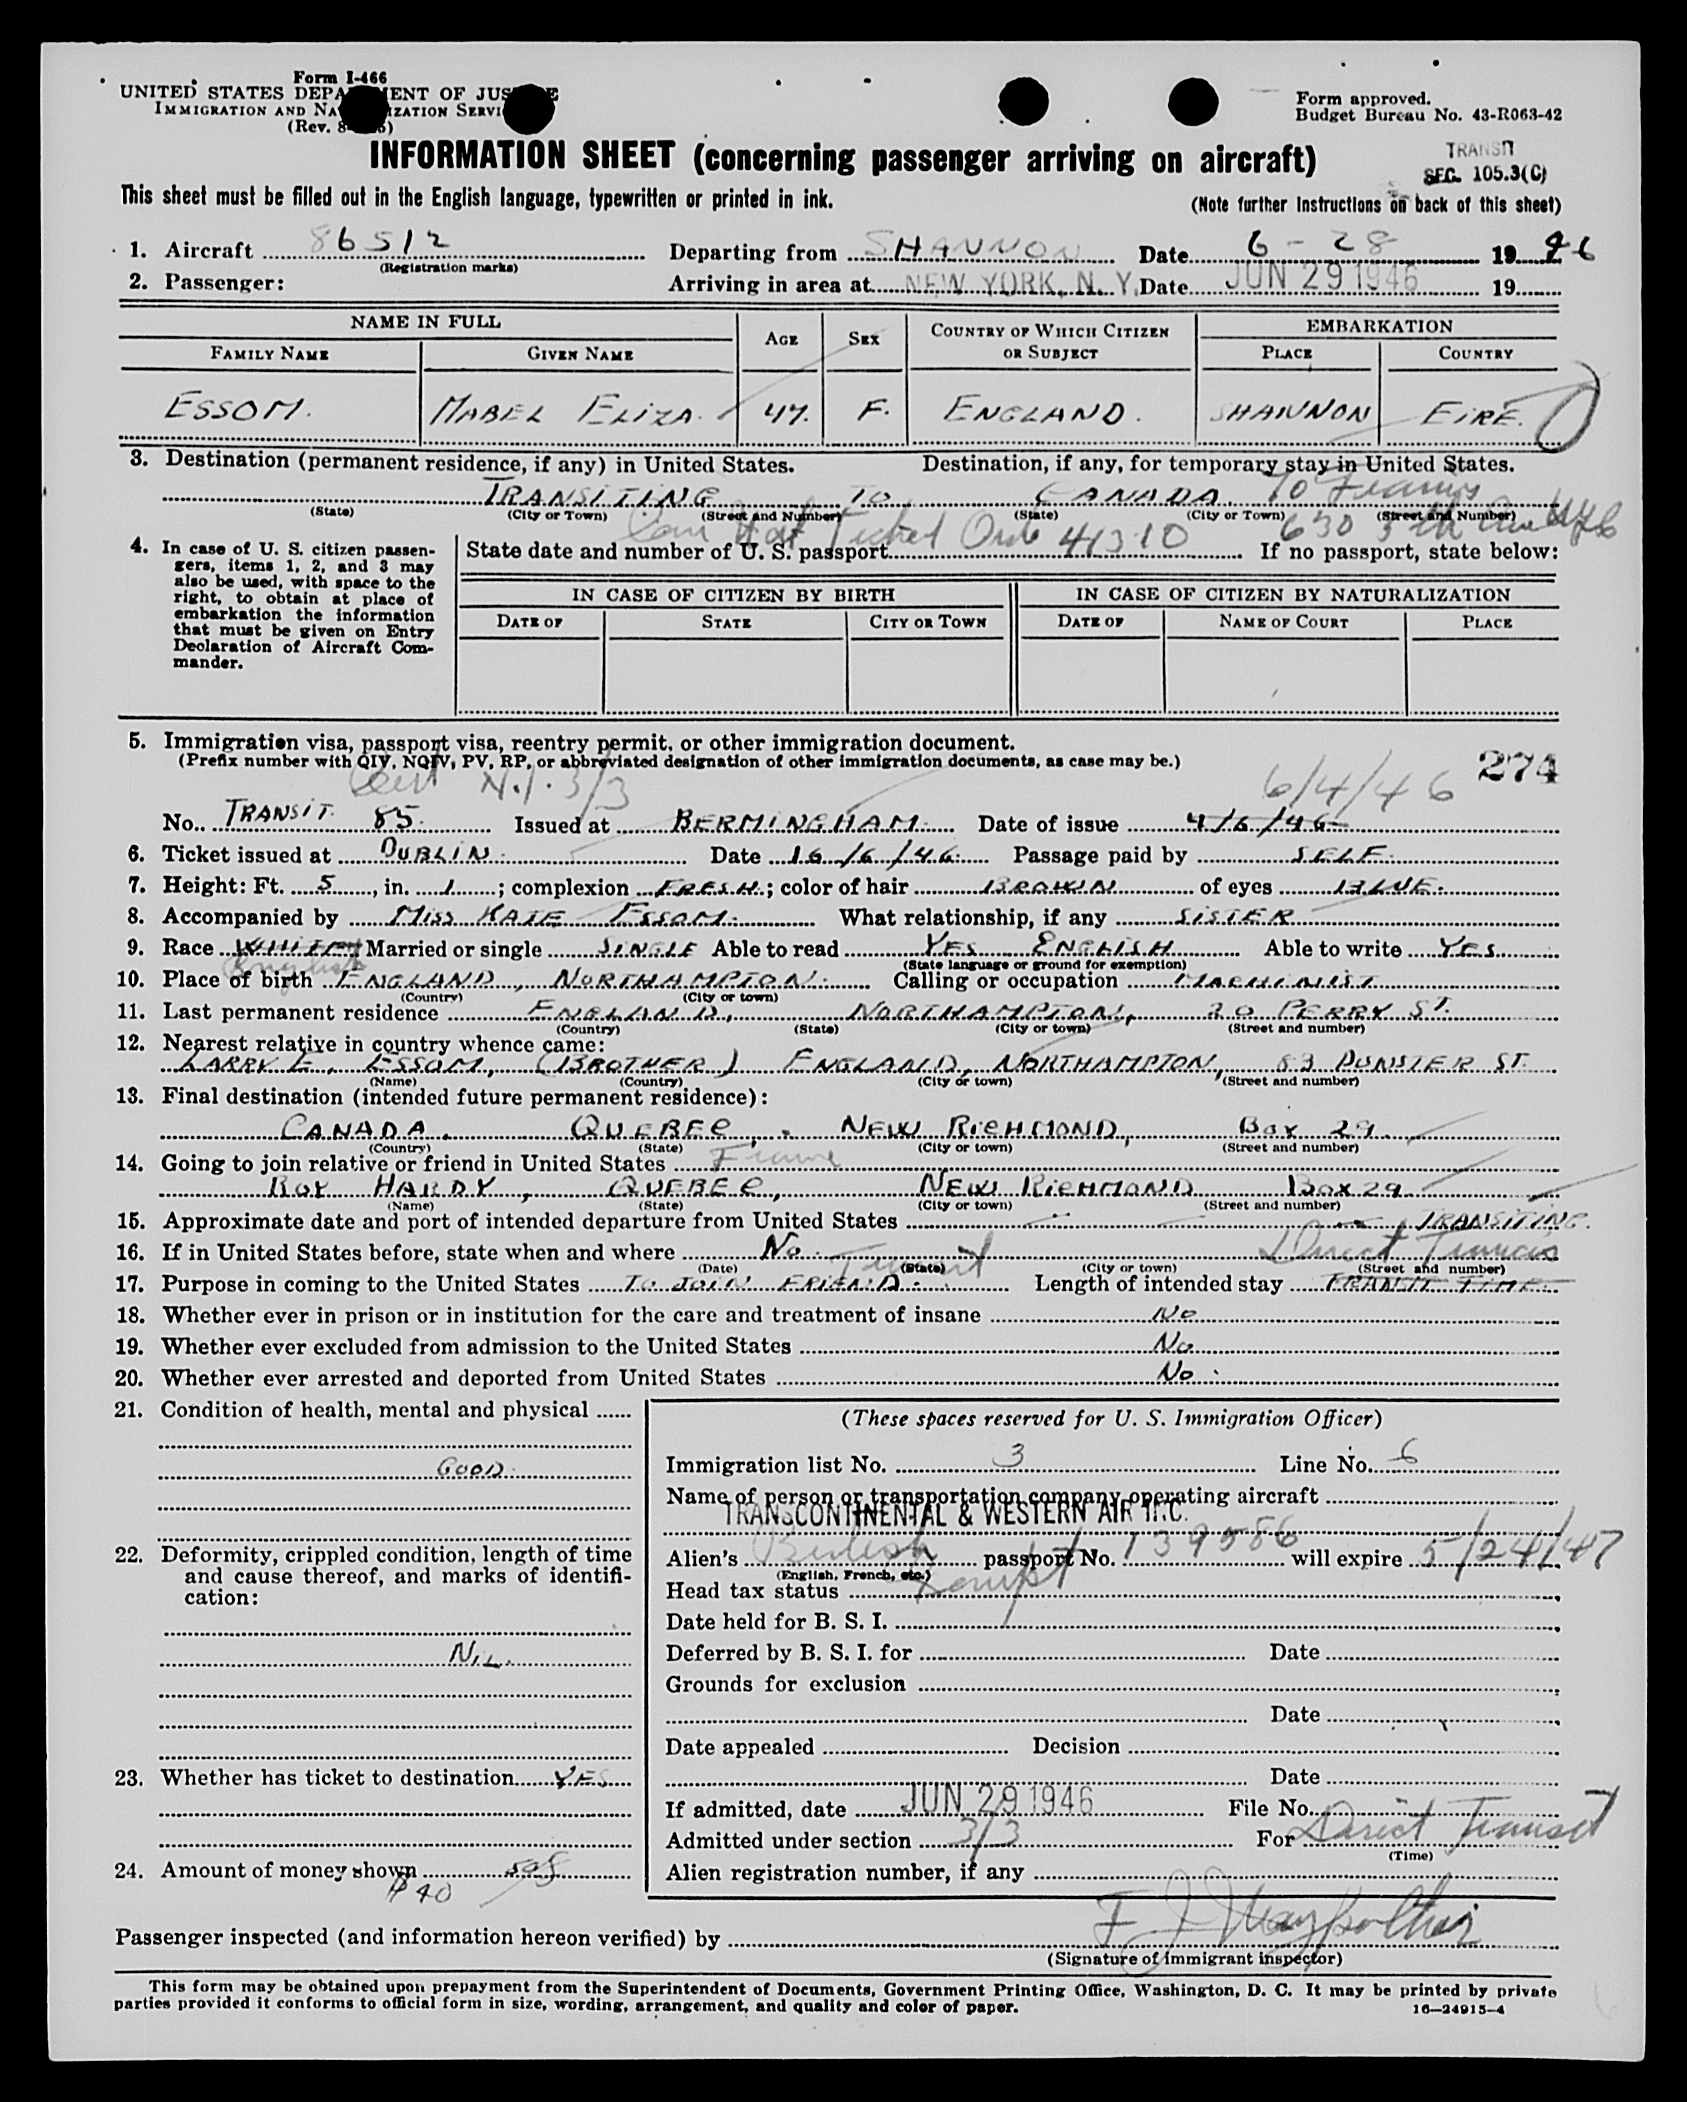 Form I-466
UNITED STATES DEPA MENT OF JUS E
IMMIGRATION AND NA IZATION SERVI
(Rev. 8- )
Form approved.
Budget Bureau No. 43-R063-42
INFORMATION SHEET (concerning passenger arriving on aircraft)
TRANSIT
SEC. 105.3(C)
This sheet must be filled out in the English language, typewritten or printed in ink.
(Note further instructions on back of this sheet)
1. Aircraft 86512 Departing from SHANNON Date 6-28 1946
(Registration marks)
2. Passenger: Arriving in area at NEW YORK, N. Y. Date JUN 29 1946 19
NAME IN FULL AGE SEX COUNTRY OF WHICH CITIZEN OR SUBJECT EMBARKATION
FAMILY NAME GIVEN NAME PLACE COUNTRY
ESSOM. MABEL ELIZA. 47. F. ENGLAND. SHANNON EIRE.
3. Destination (permanent residence, if any) in United States. Destination, if any, for temporary stay in United States.
TRANSITING TO CANADA. To Francis
(State) (City or Town) (Street and Number) (State) (City or Town) (Street and Number)
Can Nat Ticket Order 41310 630 5th Ave NYC
4. In case of U. S. citizen passengers, items 1, 2, and 3 may also be used, with space to the right, to obtain at place of embarkation the information that must be given on Entry Declaration of Aircraft Commander.
State date and number of U. S. passport If no passport, state below:
IN CASE OF CITIZEN BY BIRTH IN CASE OF CITIZEN BY NATURALIZATION
DATE OF STATE CITY OR TOWN DATE OF NAME OF COURT PLACE
5. Immigration visa, passport visa, reentry permit, or other immigration document.
(Prefix number with QIV, NQIV, PV, RP, or abbreviated designation of other immigration documents, as case may be.)
274
3/3 6/4/46
No. TRANSIT 85. Issued at BERMINGHAM. Date of issue 4/6/46
6. Ticket issued at DUBLIN. Date 16/6/46. Passage paid by SELF.
7. Height: Ft. 5, in. 1; complexion FRESH.; color of hair BROWN of eyes BLUE.
8. Accompanied by MISS KATE ESSOM. What relationship, if any SISTER
9. Race WHITE Married or single SINGLE Able to read YES ENGLISH Able to write YES
English
(State language or ground for exemption)
10. Place of birth ENGLAND, NORTHAMPTON. Calling or occupation MACHINIST
(Country) (City or town)
11. Last permanent residence ENGLAND, NORTHAMPTON, 20 PERRY ST.
(Country) (State) (City or town) (Street and number)
12. Nearest relative in country whence came:
LARRY E, ESSOM, (BROTHER) ENGLAND, NORTHAMPTON, 83 DUNSTER ST.
(Name) (Country) (City or town) (Street and number)
13. Final destination (intended future permanent residence):
CANADA. QUEBEC, NEW RICHMOND, BOX 29.
(Country) (State) (City or town) (Street and number)
14. Going to join relative or friend in United States
ROY HARDY, QUEBEC, NEW RICHMOND BOX 29
(Name) (State) (City or town) (Street and number)
15. Approximate date and port of intended departure from United States TRANSITING.
16. If in United States before, state when and where No. Direct Transit
(Date) (State) (City or town) (Street and number)
Transit
17. Purpose in coming to the United States TO JOIN FRIEND. Length of intended stay TRANSIT TIME
18. Whether ever in prison or in institution for the care and treatment of insane No
19. Whether ever excluded from admission to the United States No
20. Whether ever arrested and deported from United States No.
21. Condition of health, mental and physical
GOOD.
22. Deformity, crippled condition, length of time and cause thereof, and marks of identification:
NIL.
23. Whether has ticket to destination YES
24. Amount of money shown
$40
(These spaces reserved for U. S. Immigration Officer)
Immigration list No. 3 Line No. 6
Name of person or transportation company operating aircraft
TRANSCONTINENTAL & WESTERN AIR INC.
Alien's British passport No. 139586 will expire 5/24/47
(English, French, etc.)
Head tax status Exempt
Date held for B. S. I.
Deferred by B. S. I. for Date
Grounds for exclusion
Date
Date appealed Decision
Date
If admitted, date JUN 29 1946 File No.
Admitted under section 3/3 For Direct Transit
(Time)
Alien registration number, if any
Passenger inspected (and information hereon verified) by
(Signature of immigrant inspector)
This form may be obtained upon prepayment from the Superintendent of Documents, Government Printing Office, Washington, D. C. It may be printed by private
parties provided it conforms to official form in size, wording, arrangement, and quality and color of paper.
16—24915-4